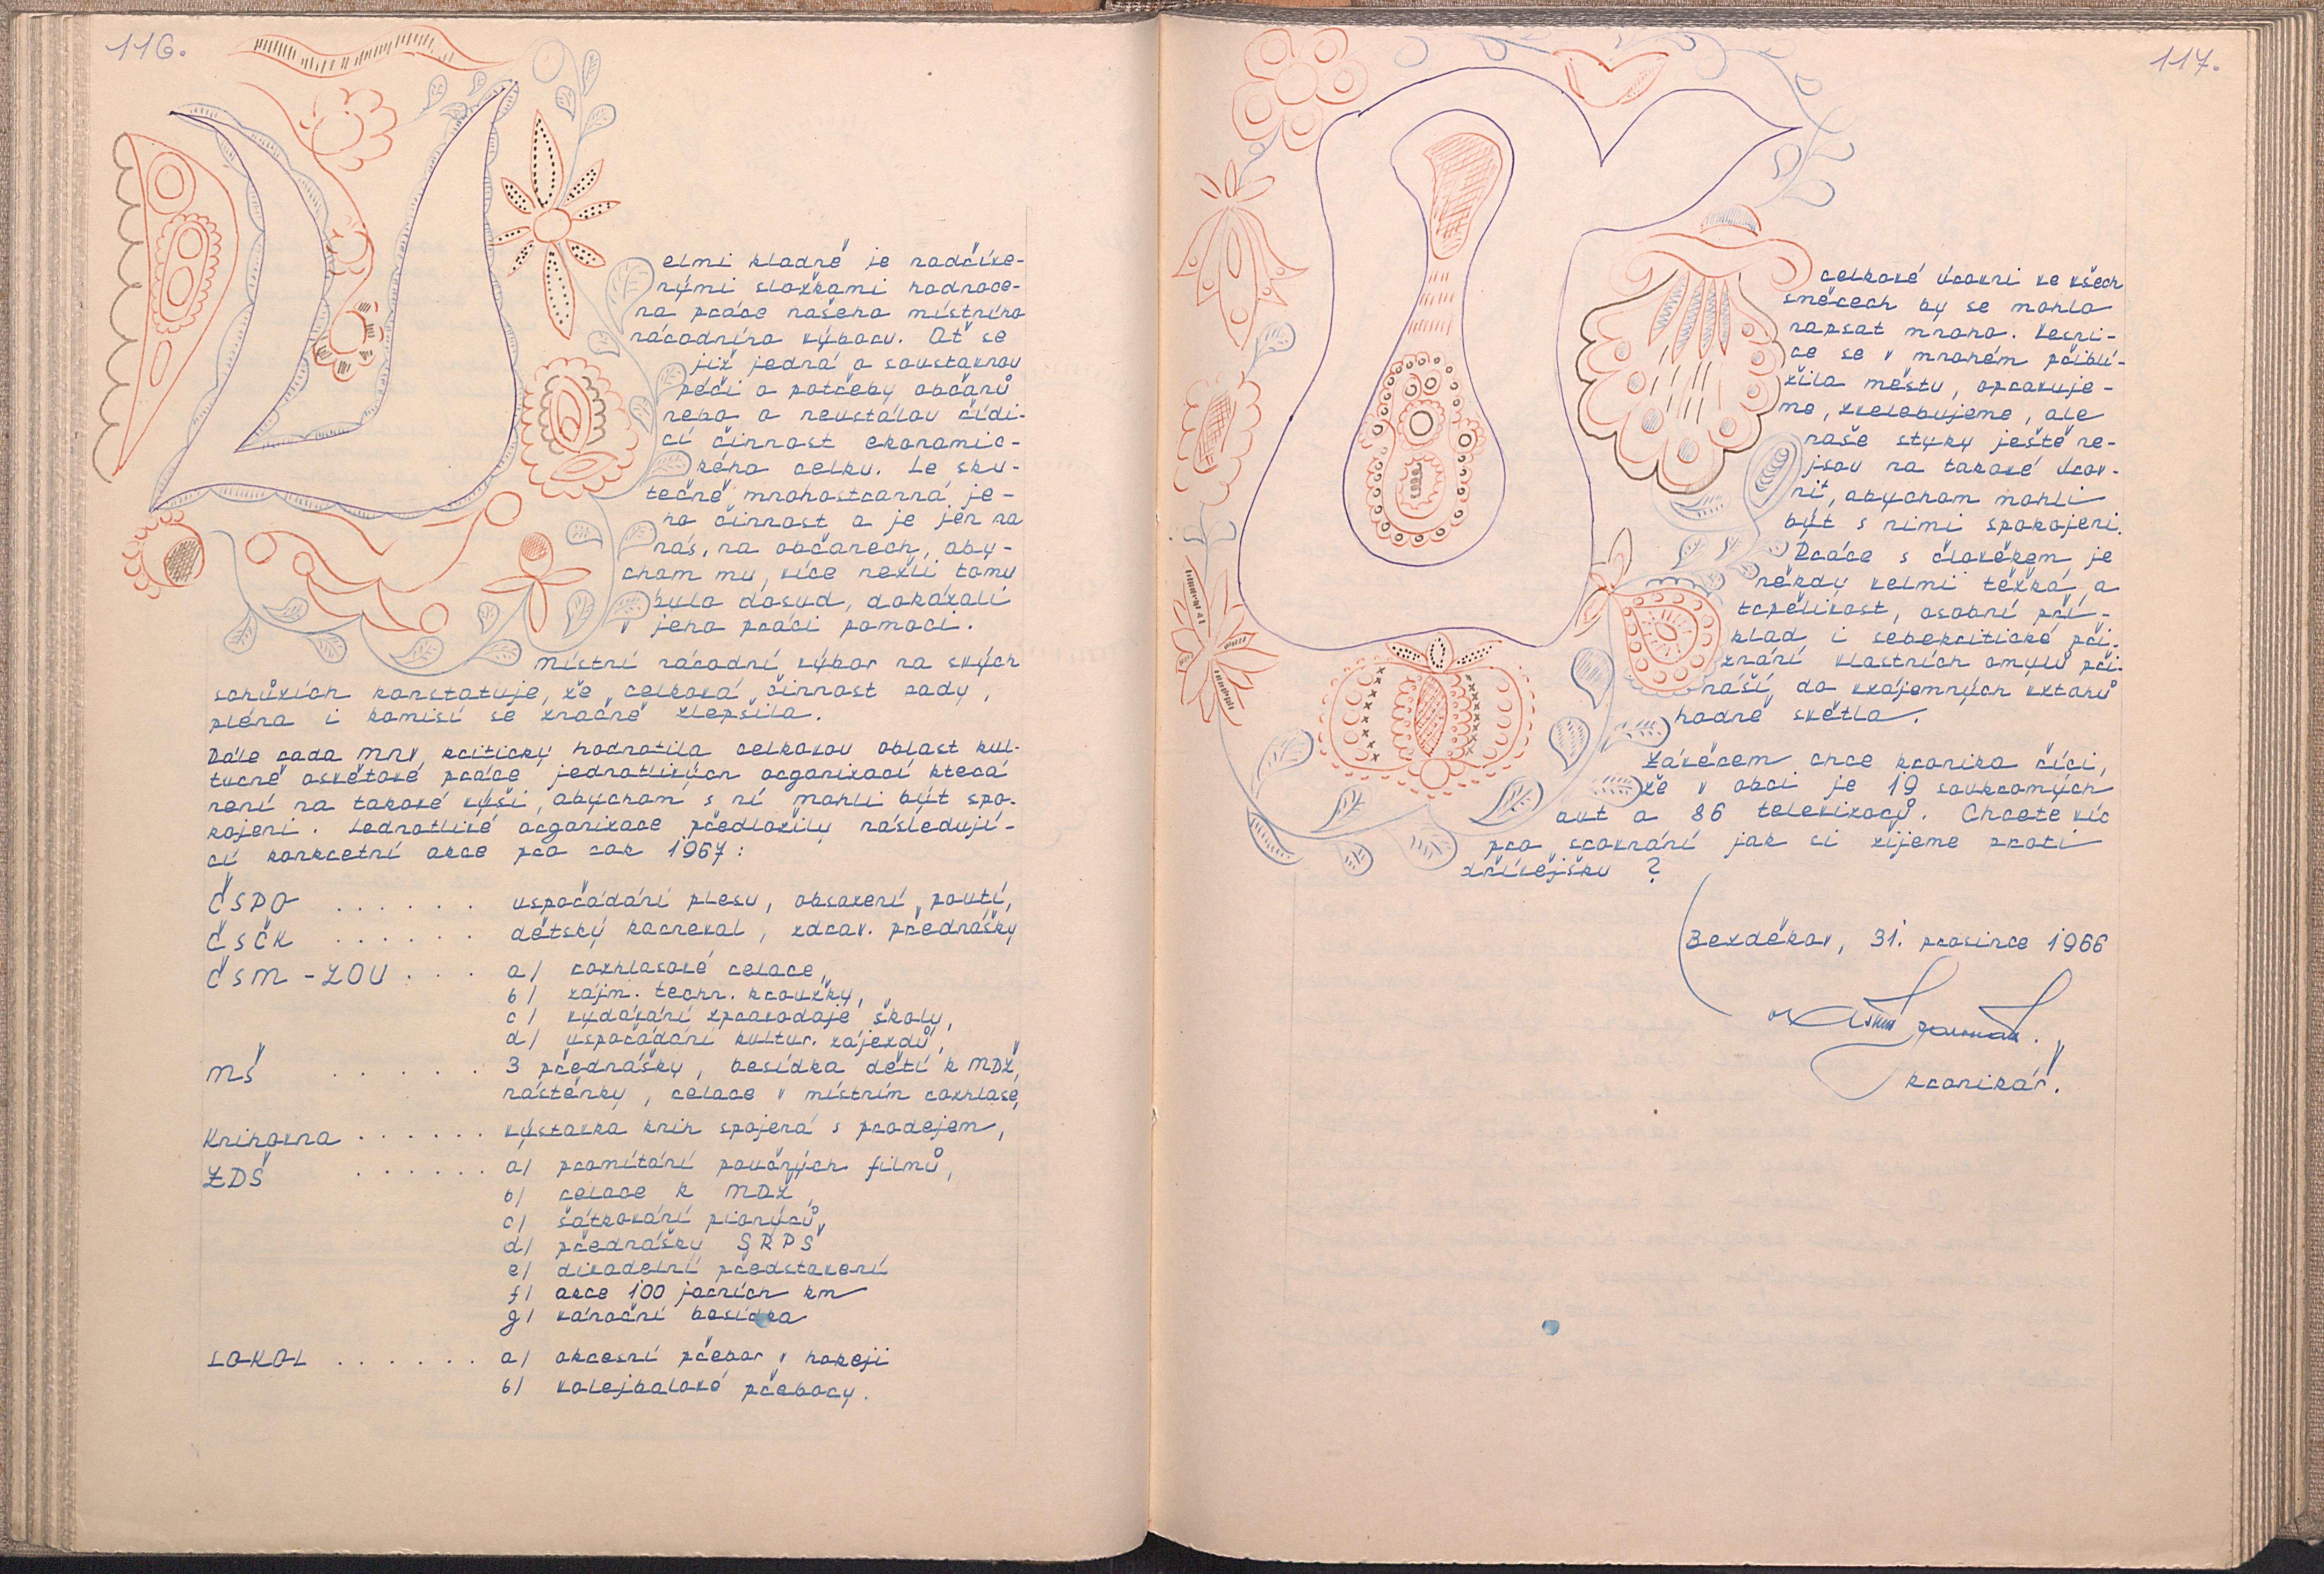 116.
V
elmi kladně je nadříze-
nými složkami hodnoce-
na práce našeho místního
národního výboru. Ať se
již jedná o soustavnou
péči o potřeby občanů
nebo o neustálou řídí-
cí činnost ekonomic-
kého celku. Je sku-
tečně mnohostranná je-
ho činnost a je jen na
nás, na občanech, aby-
chom mu, více nežli tomu
bylo dosud, dokázali
v jeho práci pomoci.
Místní národní výbor na svých
schůzích konstatuje, že celková činnost rady,
pléna i komisí se značně zlepšila.
Dále rada MNV kriticky hodnotila celkovou oblast kul-
turně osvětové práce jednotlivých organizací která
není na takové výši, abychom s ní mohli být spo-
kojeni. Jednotlivé organizace předložily následují-
cí konkretní akce pro rok 1967:
ČSPO ...... uspořádání plesu, obsazení poutí,
ČSČK ...... dětský karneval, zdrav. přednášky
ČSM - ZOU ... a/ rozhlasové relace,
b/ zájm. techn. kroužky,
c/ vydávání zpravodaje školy,
d/ uspořádání kultur. zájezdů,
MŠ ..... 3 přednášky, besídka dětí k MDŽ,
nástěnky, relace v místním rozhlase,
Knihovna ...... výstavka knih spojená s prodejem,
ZDŠ ...... a/ promítání poučných filmů,
b/ relace k MDŽ,
c/ šátkování pionýrů,
d/ přednášky SRPŠ
e/ divadelní představení
f/ akce 100 jarních km
g/ vánoční besídka
SOKOL ...... a/ okresní přebor v hokeji
b/ volejbalové přebory.
117.
O
celkové úrovni ve všech
směrech by se mohlo
napsat mnoho. Vesni-
ce se v mnohém přiblí-
žila městu, opravuje-
me, zvelebujeme, ale
naše styky ještě ne-
jsou na takové úrov-
ni, abychom mohli
být s nimi spokojeni.
Práce s člověkem je
někdy velmi těžká, a
trpělivost, osobní pří-
klad i sebekritické při-
znání vlastních omylů při-
náší do vzájemných vztahů
hodně světla.
Závěrem chce kronika říci,
že v obci je 19 soukromých
aut a 86 televizorů. Chcete víc
pro srovnání jak si žijeme proti
dřívějšku?
Bezděkov, 31. prosince 1966
kronikář.